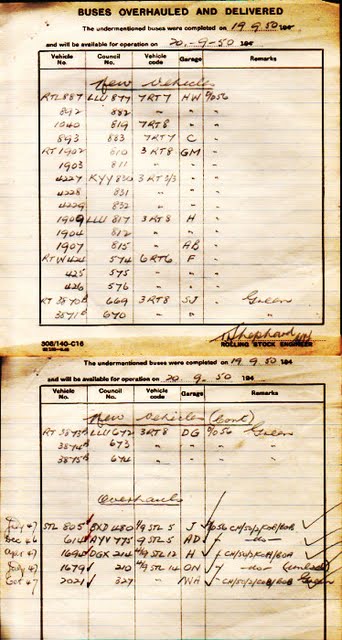 BUSES OVERHAULED AND DELIVERED
The undermentioned buses were completed on 19 9.50 194
and will be available for operation on 20.-9-50 194
Vehicle No. Council No. Vehicle code Garage Remarks
New Vehicles
RTL887 LLU 877 7RT7 HW 9/056
892 882 " " "
1040 819 7RT8 " "
893 883 7RT7 C "
RT1902 810 3RT8 GM "
1903 811 " " "
4227 KYY 830 3RT3/3 " "
4228 831 " " "
4229 832 " " "
1909 LLU 817 3RT8 H "
1904 812 " " "
1907 815 " AB "
RTW424 574 6RT6 F "
425 575 " " "
426 576 " " "
RT 3870 669 3RT8 SJ " Green
3871 670 " " " "
308/140-C16
Shephard
ROLLING STOCK ENGINEER
The undermentioned buses were completed on 19 9.50 194
and will be available for operation on 20. 9. 50 194
Vehicle No. Council No. Vehicle code Garage Remarks
New Vehicles (cont)
RT 3873 LLU 672 3RT8 DG 9/056 Green
3874 673 " " " "
3875 674 " " " "
Overhauls
July 47 STL 805 DXD 480 STL 5 J 9/056
Dec 46 614 AYV 775 9 STL 5 AD " -do-
Apr 47 1696 DGX 214 STL 12 H "
July 47 1679 210 STL 14 ON " -do-
Oct 47 2021 327 " NA " Green